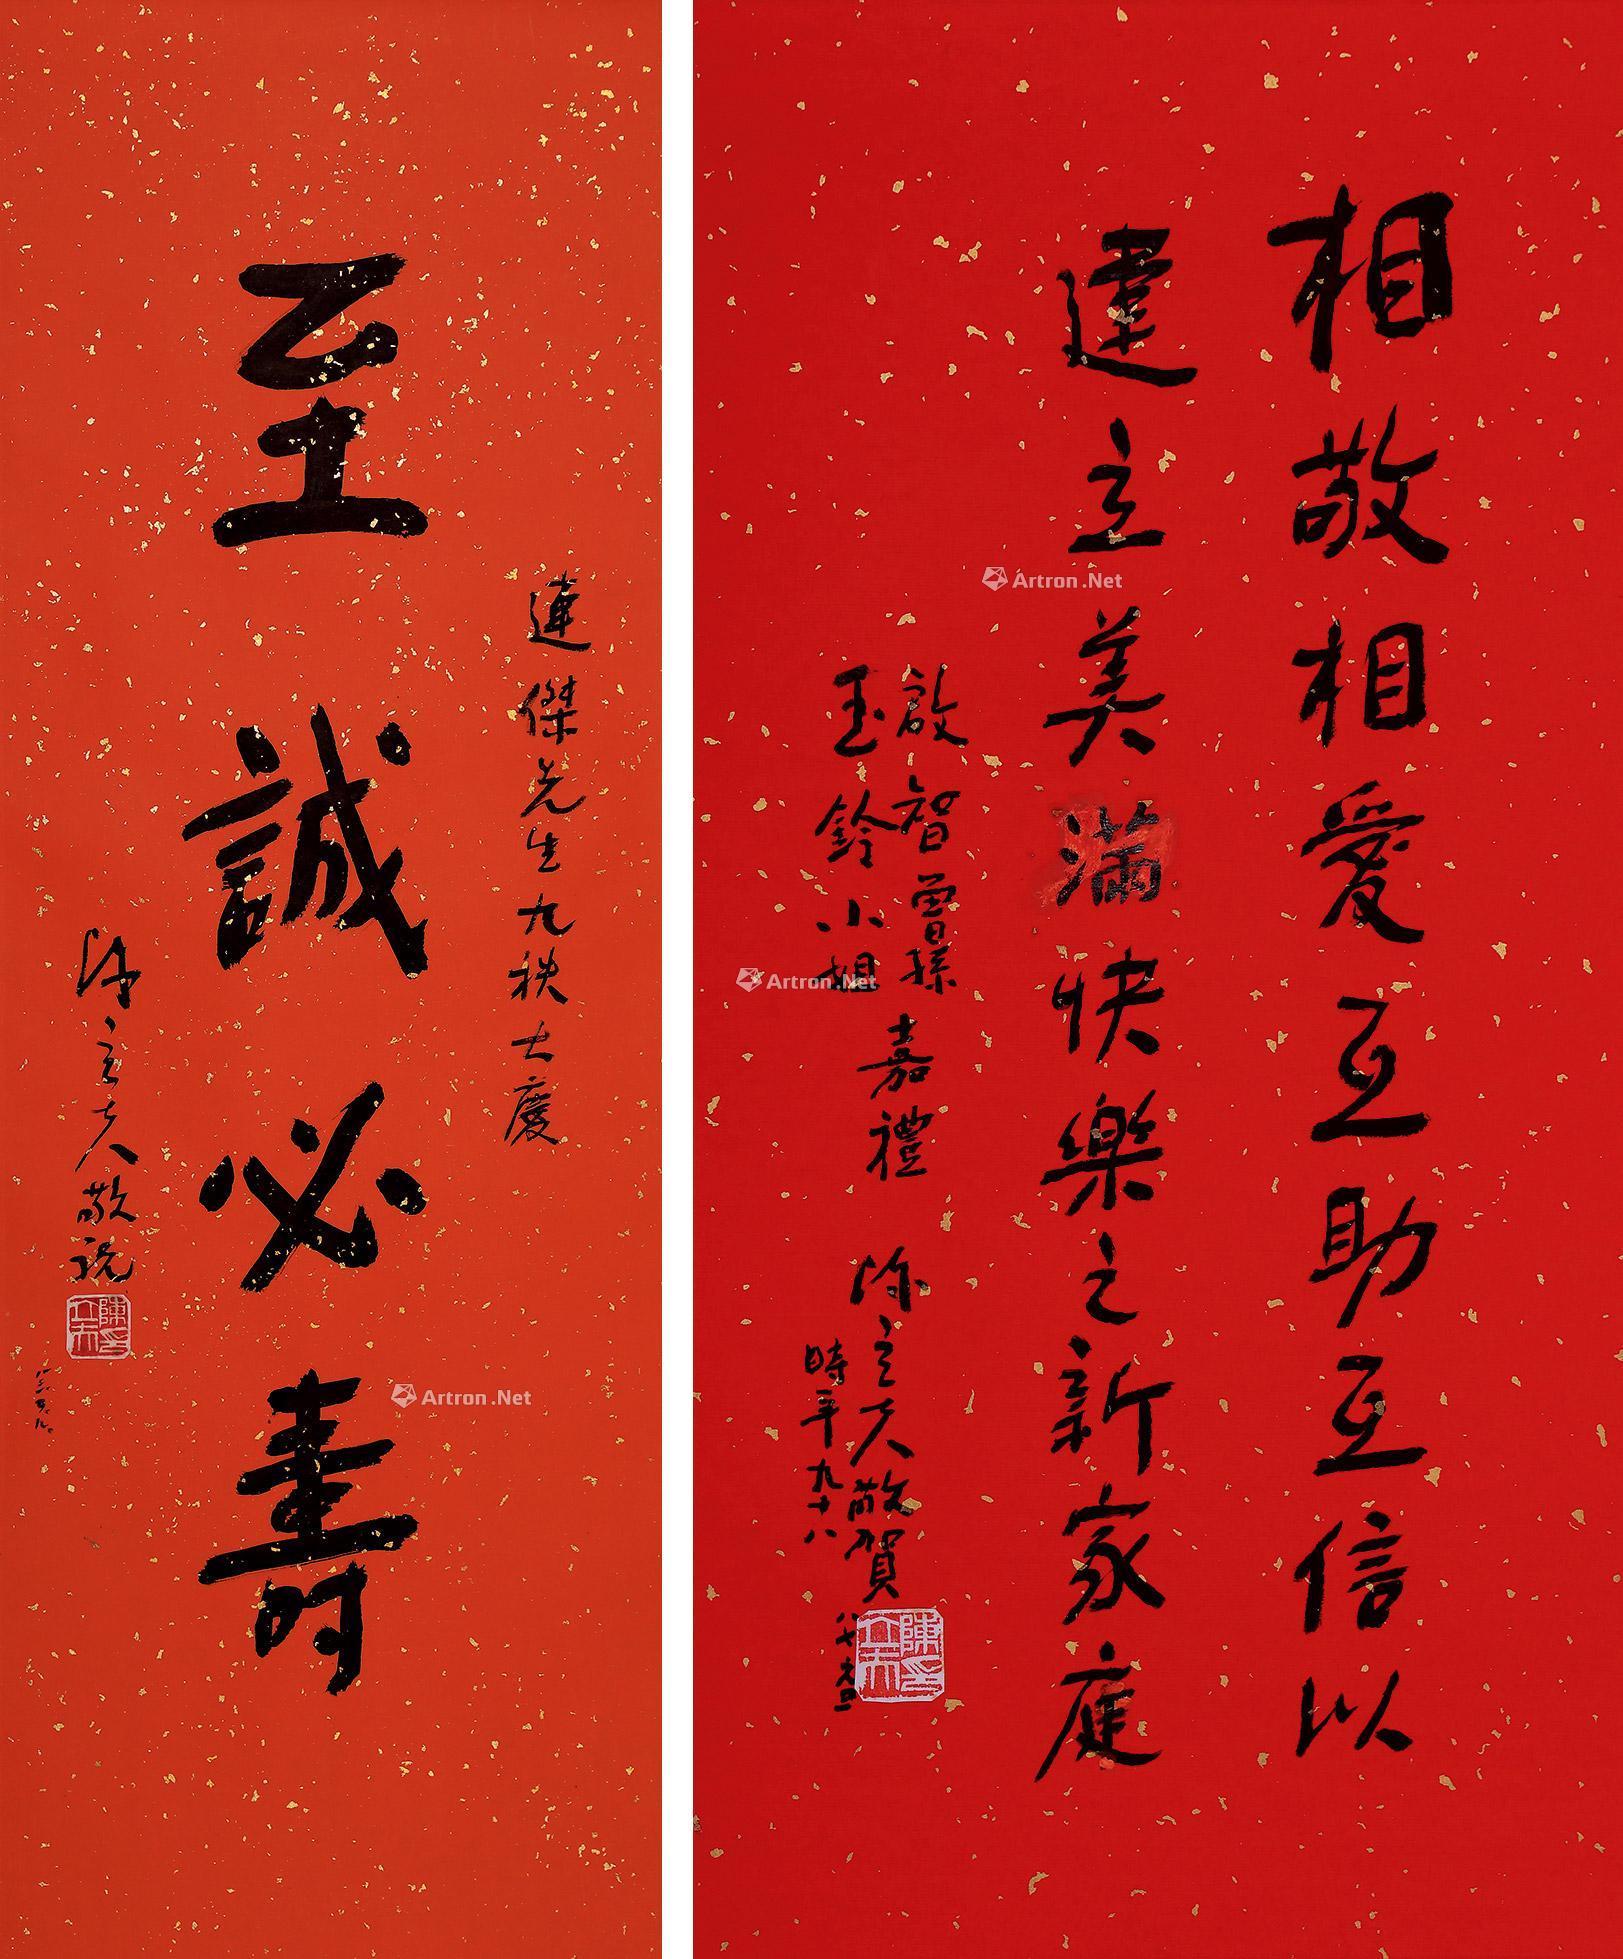 相敬相愛互助互信以
建立美滿快樂之新家庭
啟智曾孫
玉鈴小姐
嘉禮
陳立夫敬賀
時年九十八
陳立夫印
連傑先生九秩大慶
至誠必壽
陳立夫敬祝
陳立夫印
Artron.Net
Artron.Net
Artron.Net